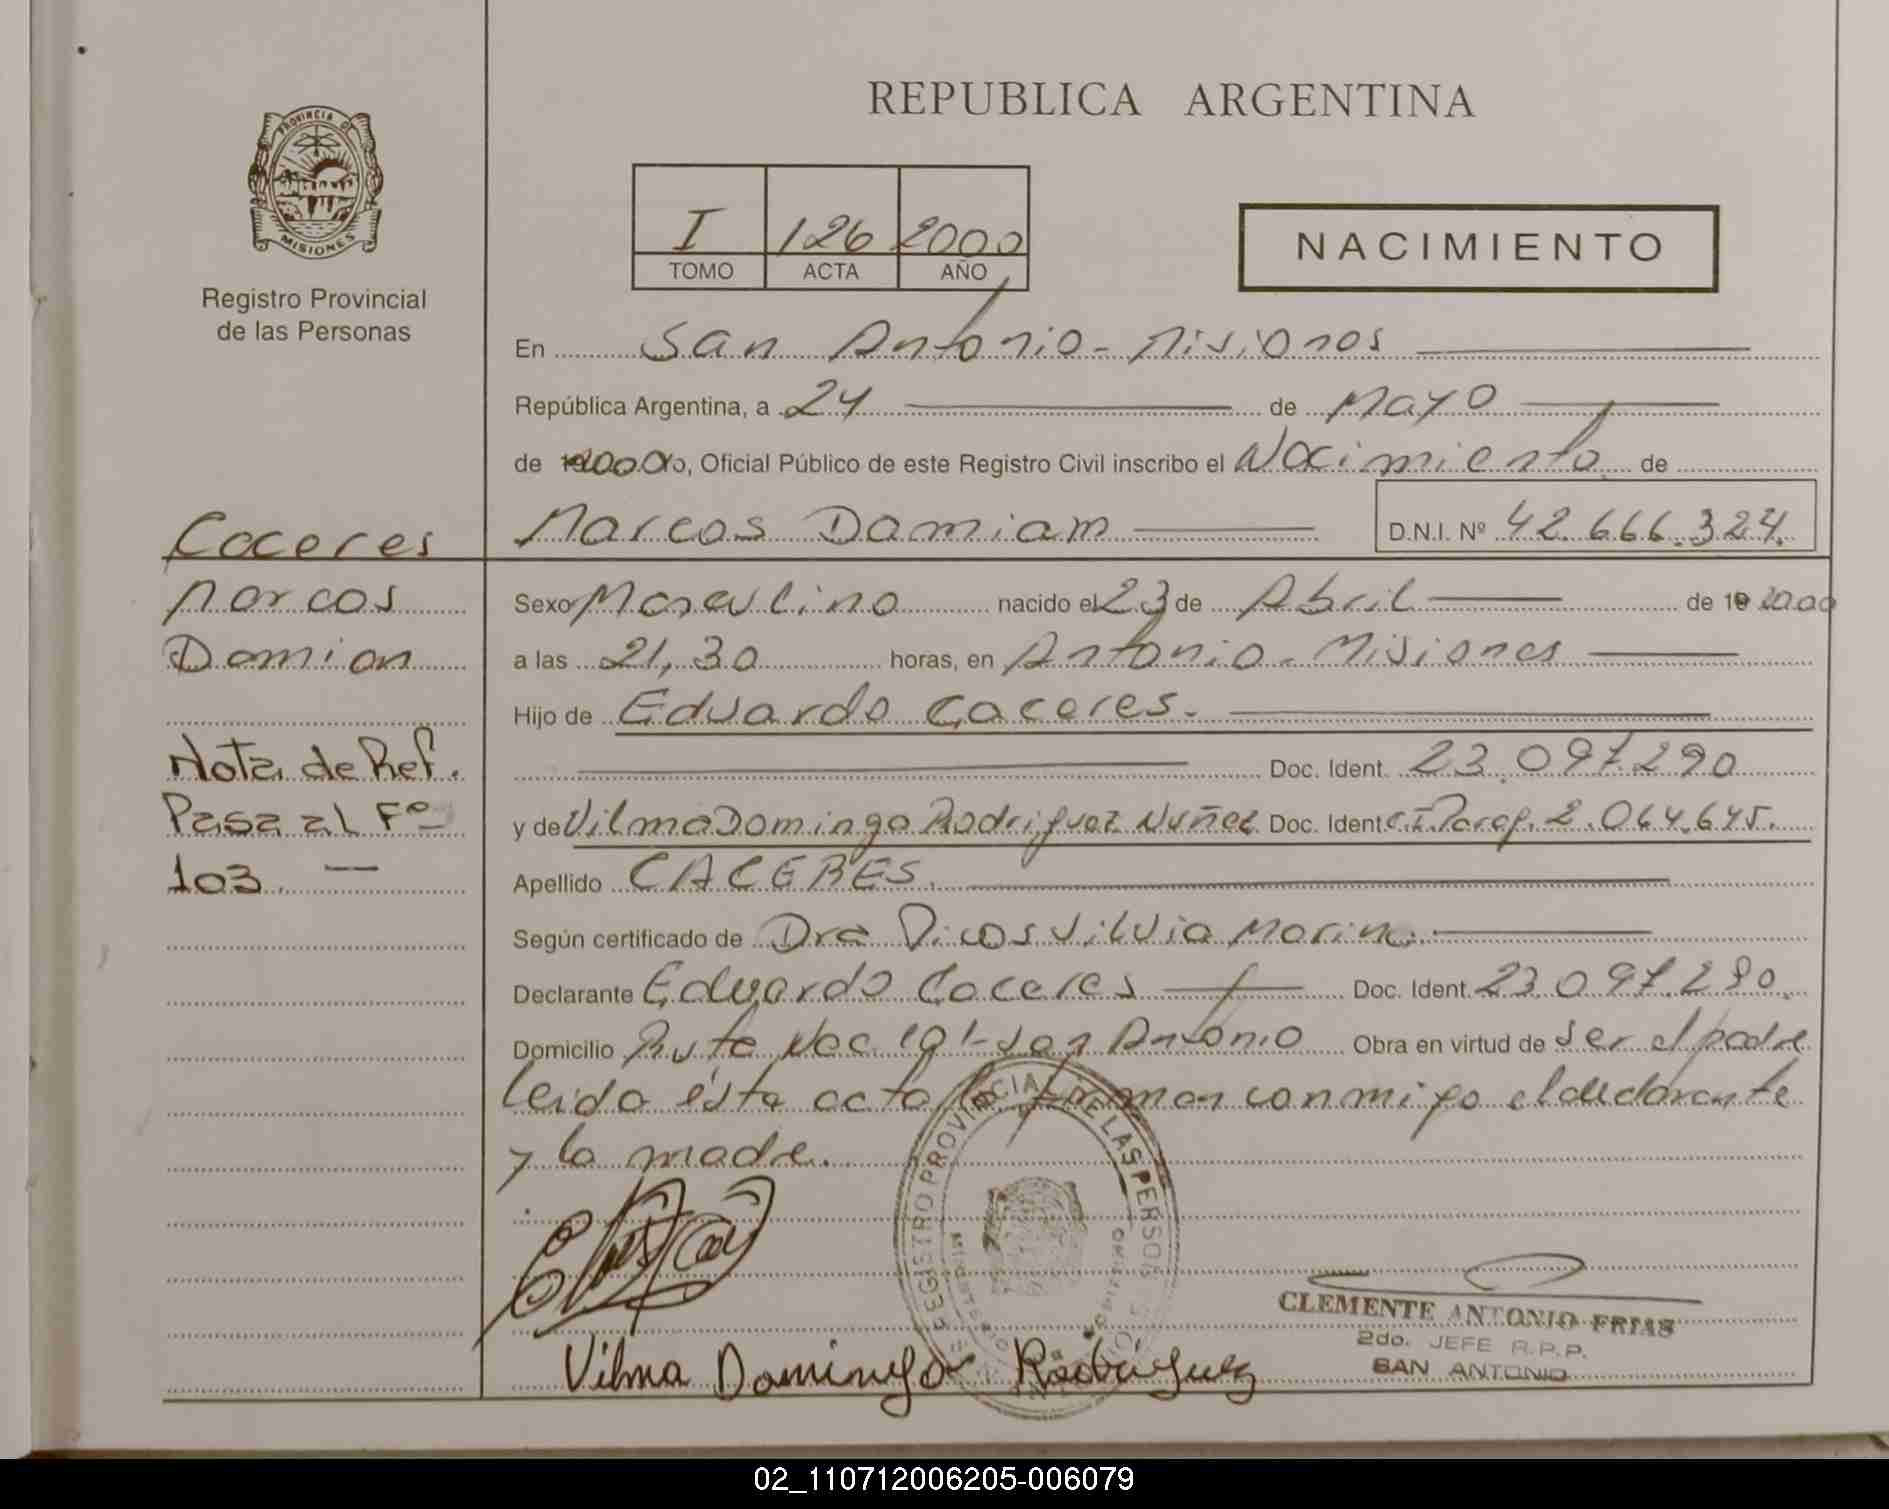 REPUBLICA ARGENTINA
PROVINCIA DE
MISIONES
Registro Provincial
de las Personas
I 126 2000
TOMO ACTA AÑO
NACIMIENTO
En San Antonio - Misiones
República Argentina, a 24 de Mayo
de 2000 yo, Oficial Público de este Registro Civil inscribo el Nacimiento de
Marcos Damiam D.N.I. Nº 42.666.324.
Caceres
Marcos
Damian
Nota de Ref.
Pasa al Fº
103. —
Sexo Masculino nacido el 23 de Abril de 19 2000
a las 21,30 horas, en Antonio - Misiones
Hijo de Eduardo Caceres.
Doc. Ident. 23.097.290
y de Vilma Dominga Rodriguez Nuñez Doc. Ident. C.I. Parag. 2.064.645.
Apellido CACERES.
Según certificado de Dra Silvia Marina
Declarante Eduardo Caceres Doc. Ident. 23.097.290.
Domicilio Ruta Nac. 101 - San Antonio Obra en virtud de ser el padre
leida ésta acta la firman conmigo el declarante
y la madre.
REGISTRO PROVINCIAL DE LAS PERSONAS
MINISTERIO
Vilma Dominga Rodriguez
CLEMENTE ANTONIO FRIAS
2do. JEFE R.P.P.
SAN ANTONIO
02_110712006205-006079